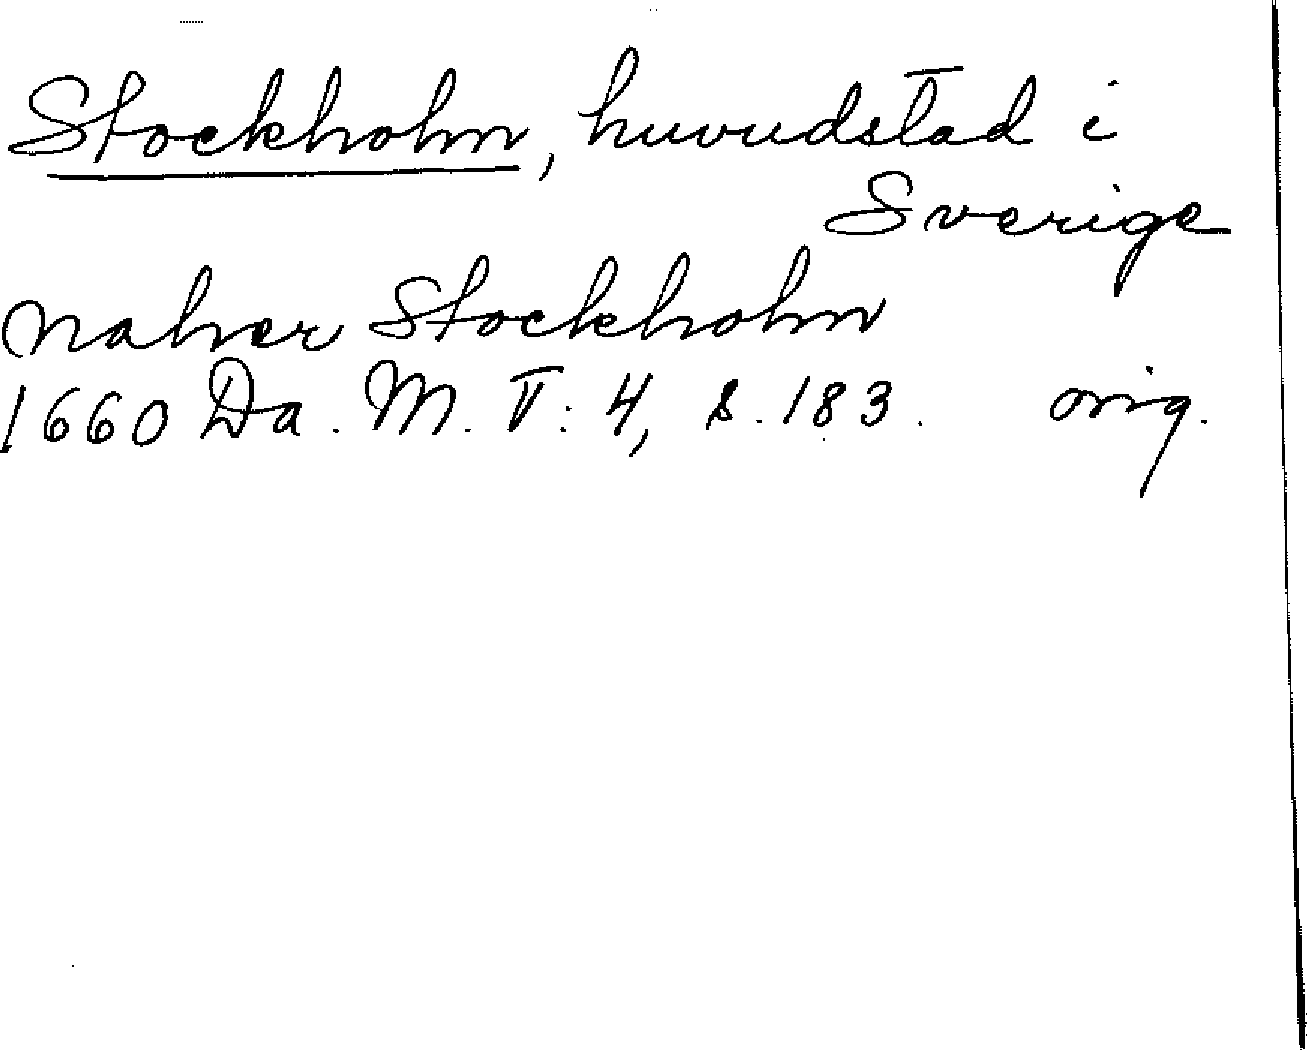 Stockholm, huvudstad i
Sverige
naher Stockholm
1660 Da. M. T: 4, s. 183. orig.